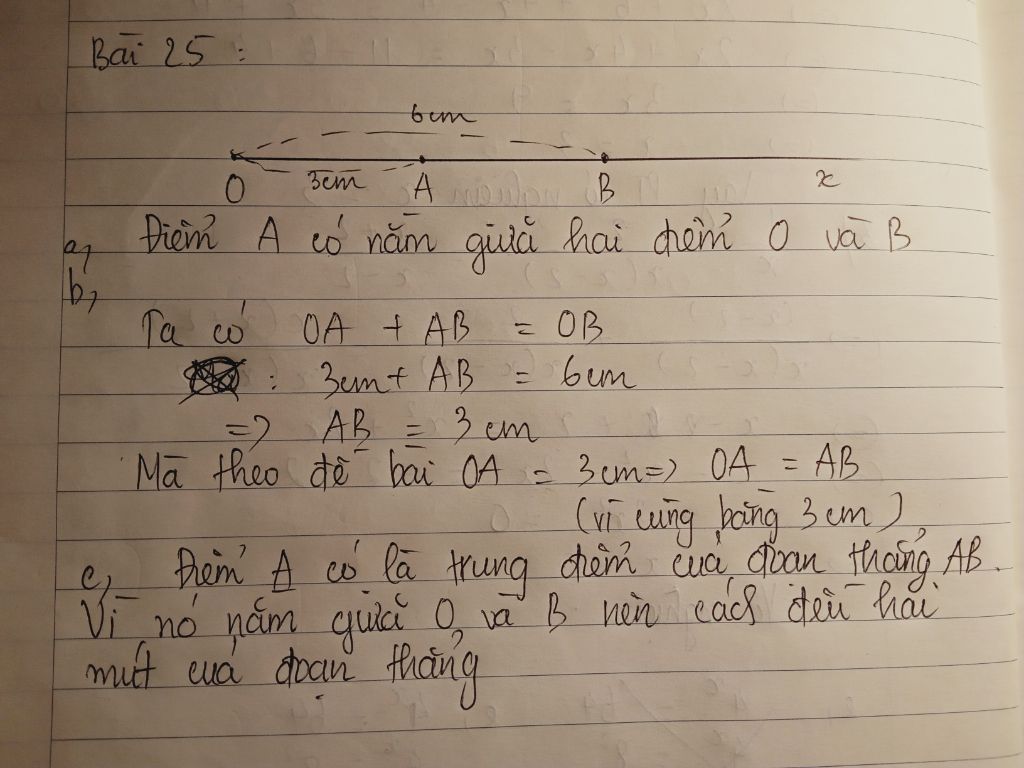 Bài 25 :
6cm
3cm
O A B x
a, Điểm A có nằm giữa hai điểm O và B
b,
Ta có OA + AB = OB
: 3cm + AB = 6cm
=> AB = 3 cm
Mà theo đề bài OA = 3cm => OA = AB
(vì cùng bằng 3 cm)
c, Điểm A có là trung điểm của đoạn thẳng AB.
Vì nó nằm giữa O và B nên cách đều hai
mút của đoạn thẳng